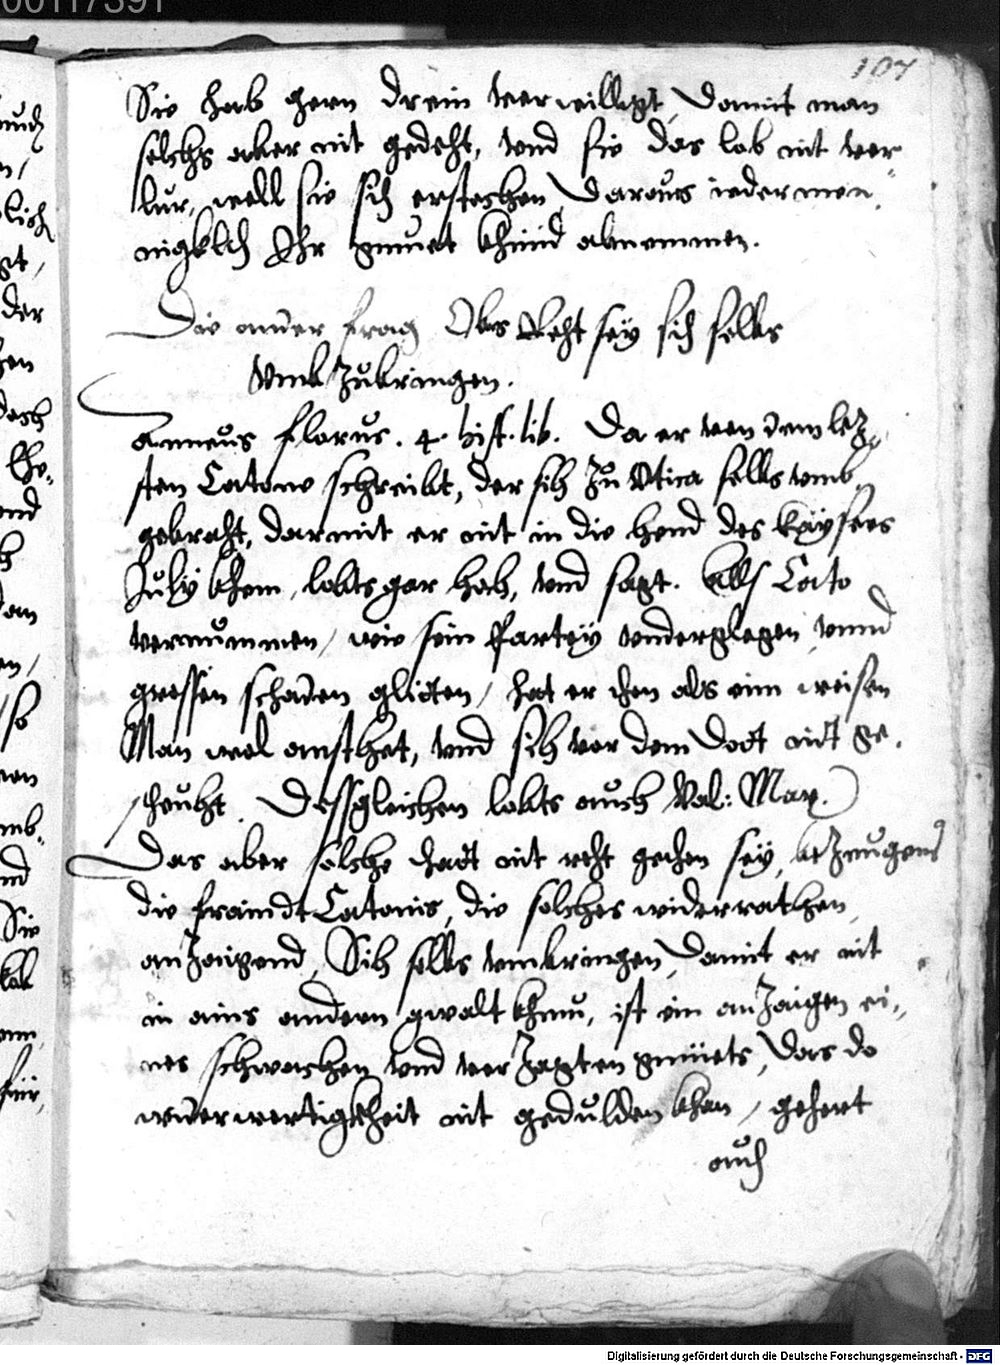 00117391
107
Sie hab gern drein verwilligt, damit man
solchs aber nit gedeht, vnd sie das lob nit ver
lur, well sie sich erstechen, daraus iederman
nigklich Ihr gmuet khünd abnemmen.
Die ander frag Obs Recht sey sich selbs
vmb Zubringen.
Anneus Florus. 4. hist. lib. Da er von dem letz
sten Catone schreibt, der sich Zu Vtica selbs vmb
gebracht, darmit er nit in die hend des Kaysers
July khem, lobts gar hoch, vnd sagt. Alls Cato
vernummen, wie sein Partey vnderglegen, vnnd
grossen schaden glidten, hat er eben als eim weisen
Man wol ansthet, vnd sich vor dem Dodt nit ge
scheucht. Dessgleichen lobts auch Val: Max.
Das aber solche thadt nit recht gethon sey, beZeugens
die freindt Catonis, die solches widerrathen,
anZaigend, Sich selbs vmbringen, damit er nit
in ains andern gwalt khem, ist ein anZaigen ei
nes schwachen vnd verZagten gmüets, Das do
widerwertigkheit nit gedulden khan, gehert
auch
Digitalisierung gefördert durch die Deutsche Forschungsgemeinschaft - DFG